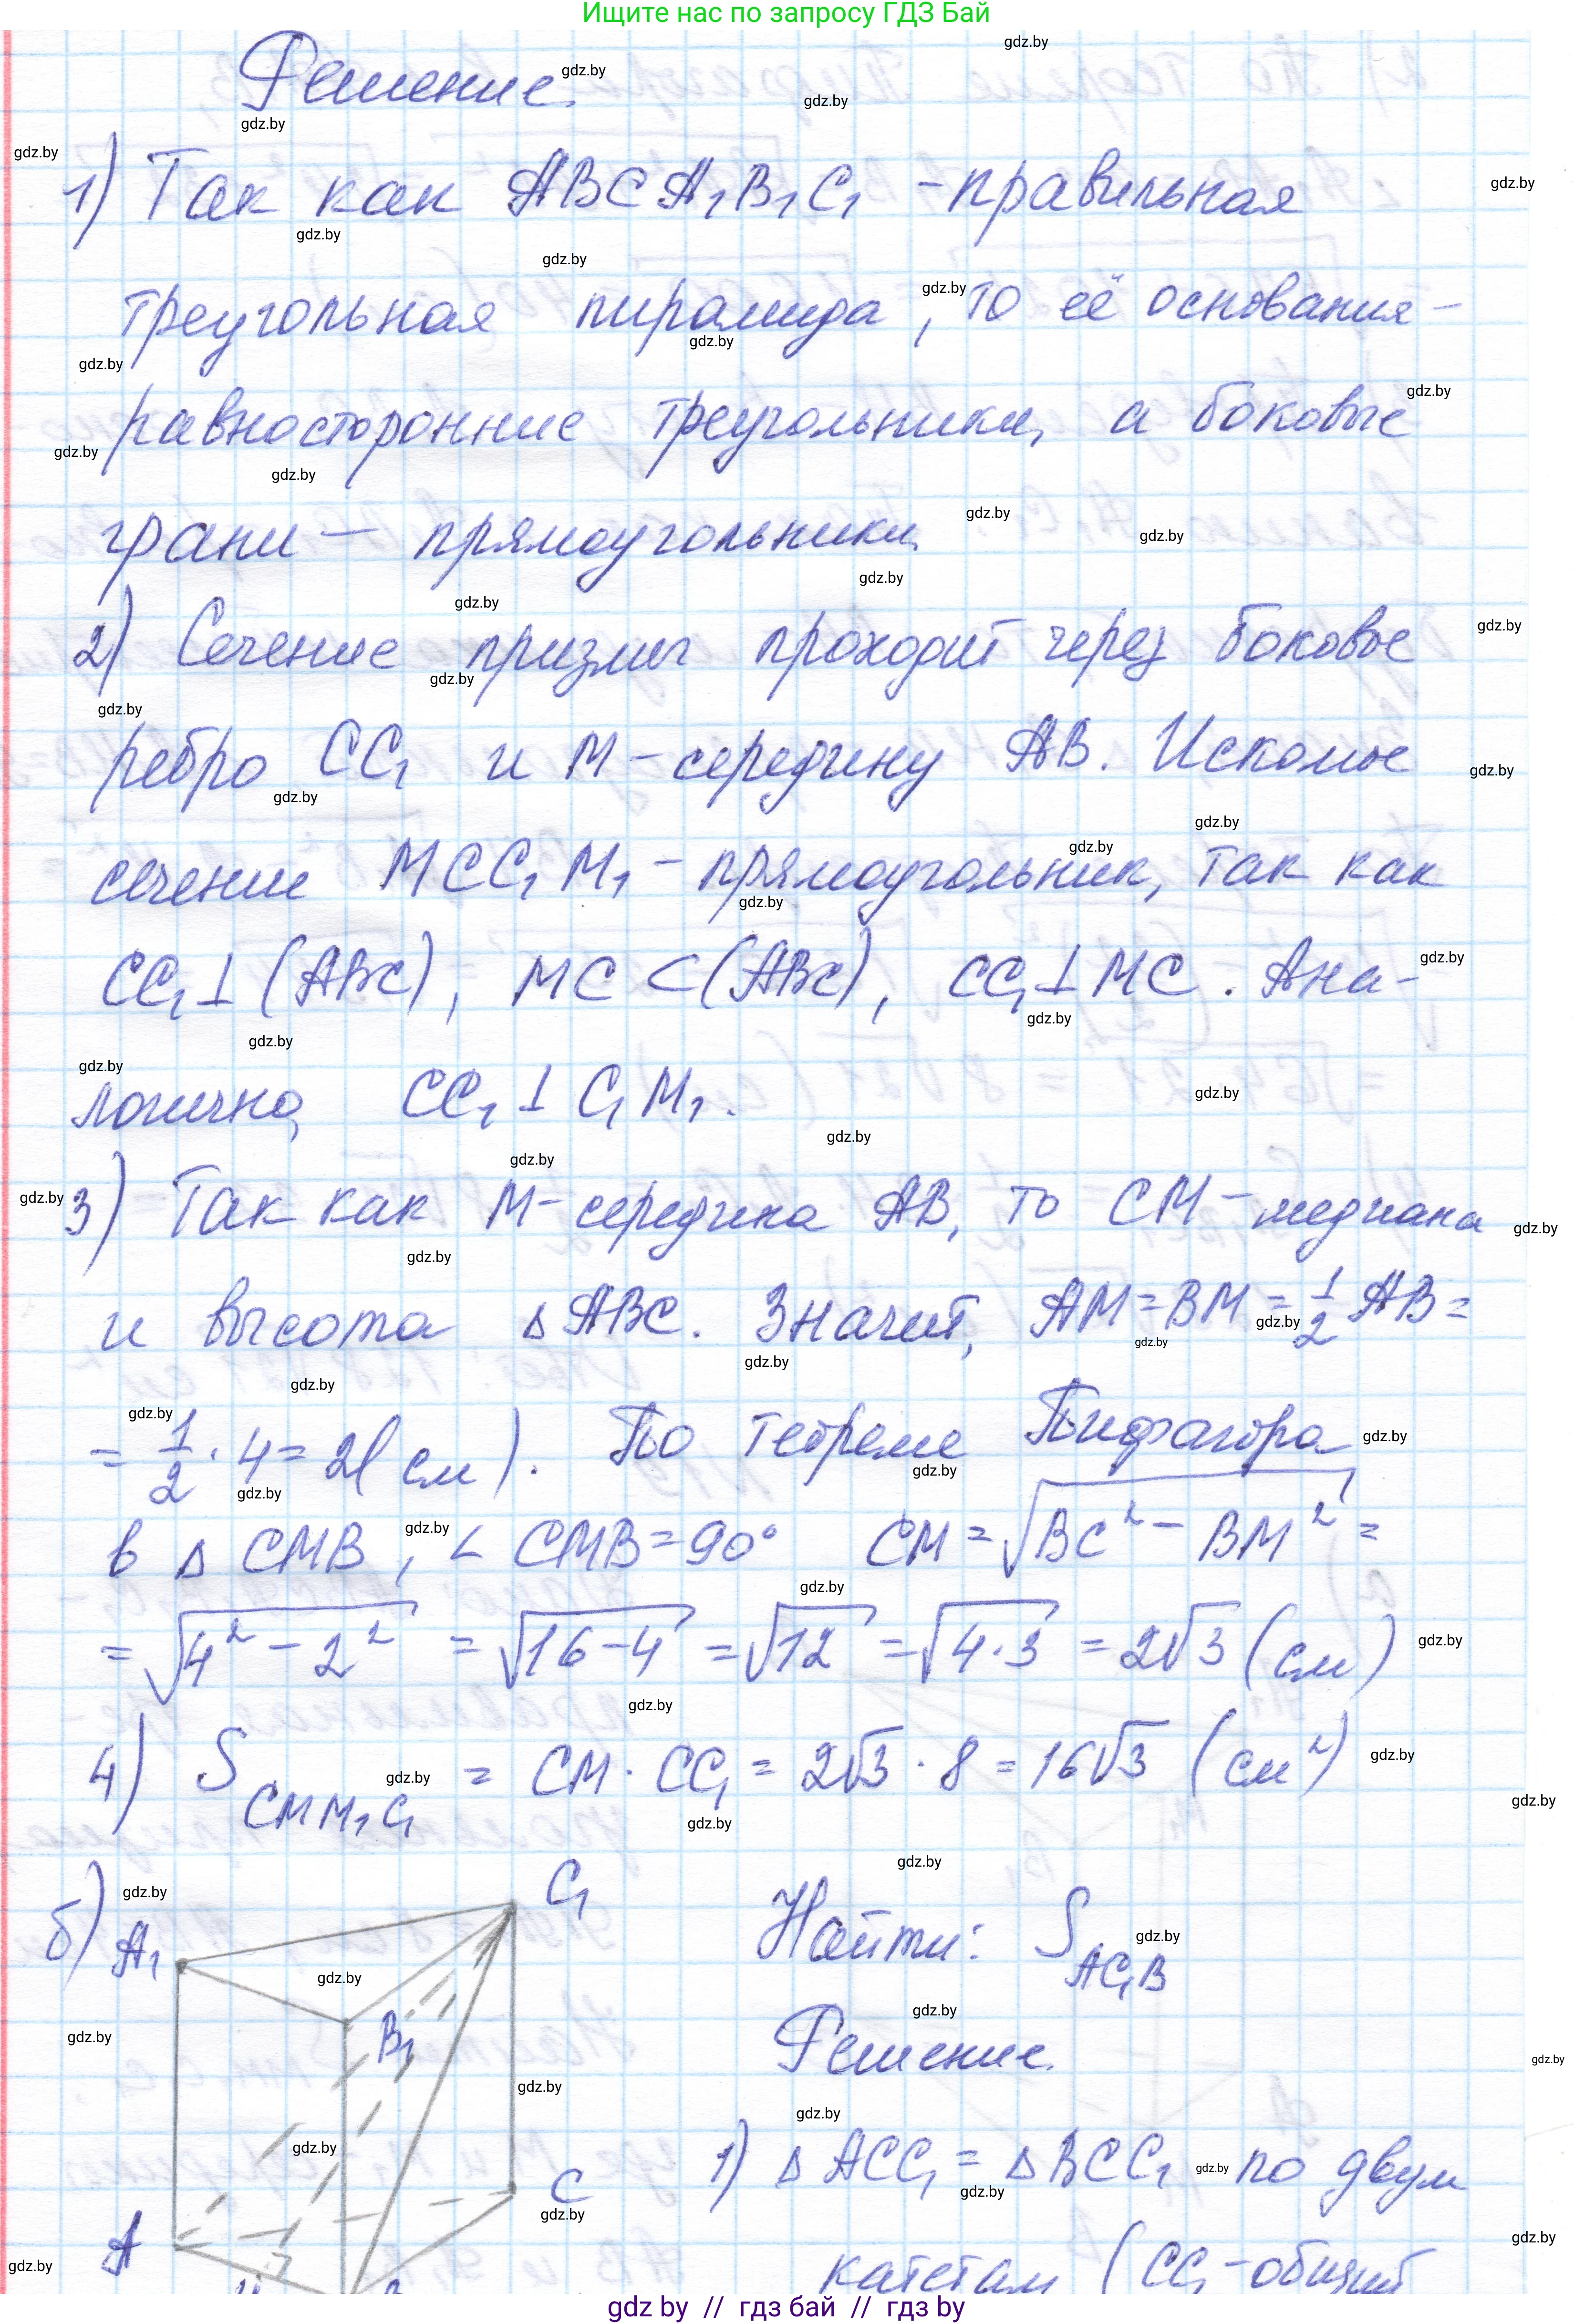 Ищите нас по запросу ГДЗ Бай
Решение.
1) Так как ABCA₁B₁C₁ - правильная
треугольная пирамида, то её основания -
равносторонние треугольники, а боковые
грани - прямоугольники.
2) Сечение призмы проходит через боковое
ребро CC₁ и M - середину AB. Искомое
сечение MCC₁M₁ - прямоугольник, так как
CC₁ ⊥ (ABC), MC ⊂ (ABC), CC₁ ⊥ MC. Ана-
логично, CC₁ ⊥ C₁M₁.
3) Так как M - середина AB, то CM - медиана
и высота △ABC. Значит, AM = BM = 1/2 AB =
= 1/2 · 4 = 2 (см). По теореме Пифагора
в △ CMB, ∠ CMB = 90° CM = √(BC² - BM²) =
= √(4² - 2²) = √(16-4) = √12 = √(4·3) = 2√3 (см)
4) S CMM₁C₁ = CM · CC₁ = 2√3 · 8 = 16√3 (см²)
б) A₁ C₁ B₁ A C
Найти: S AC₁B
Решение.
1) △ ACC₁ = △ BCC₁ по двум
катетам (CC₁ - общий
gdz by // гдз бай // гдз by